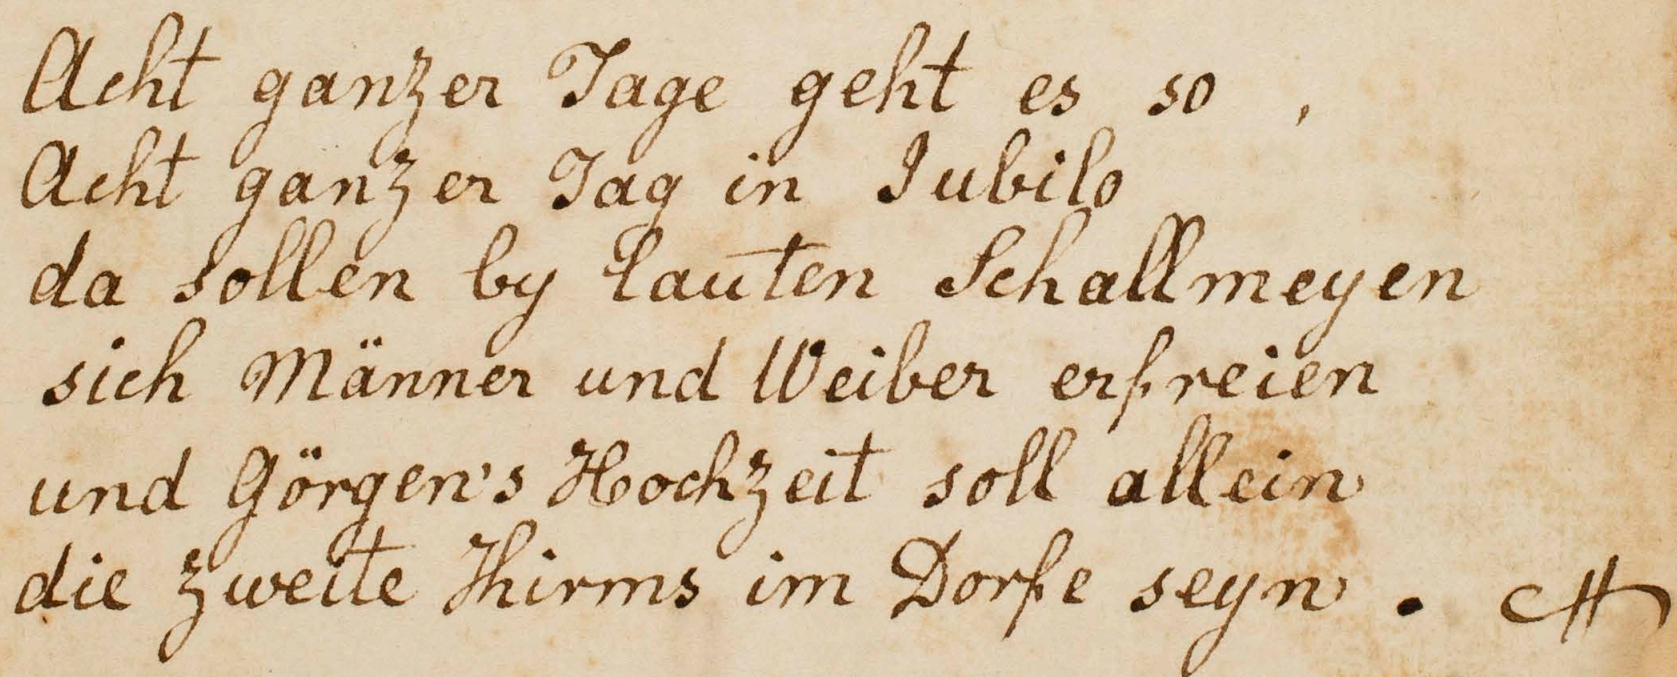 Acht ganzer Tage geht es so ,
Acht ganzer Tag in Jubilo
da sollen by lauten Schallmeyen
sich Männer und Weiber erfreien
und Görgen's Hochzeit soll allein
die zweite Khirms im Dorfe seyn .